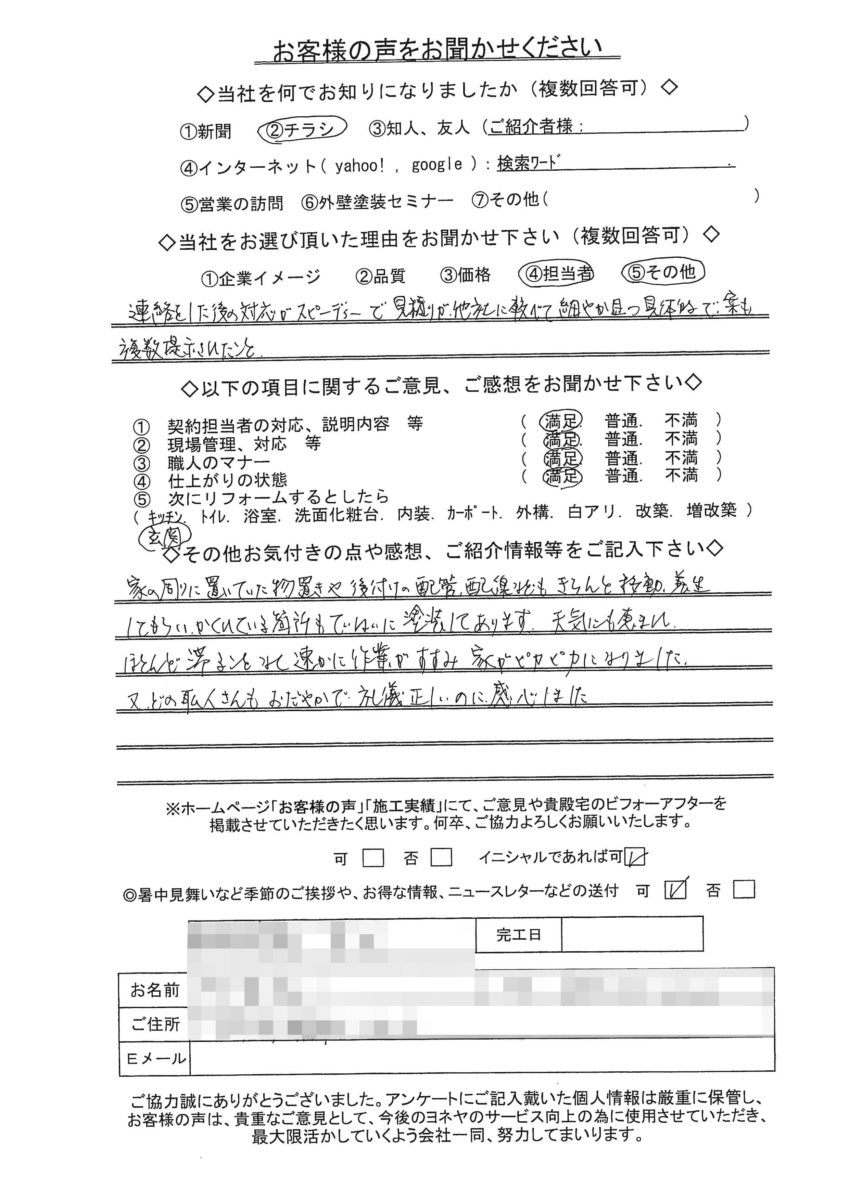 お客様の声をお聞かせください
◇当社を何でお知りになりましたか（複数回答可）◇
①新聞 ②チラシ ③知人、友人（ご紹介者様： ）
④インターネット( yahoo! , google )：検索ワード
⑤営業の訪問 ⑥外壁塗装セミナー ⑦その他( )
◇当社をお選び頂いた理由をお聞かせ下さい（複数回答可）◇
①企業イメージ ②品質 ③価格 ④担当者 ⑤その他
連絡をした後の対応がスピーディーで見積りが他社に較べて細やか且つ具体的で、案も
複数提示されたこと。
◇以下の項目に関するご意見、ご感想をお聞かせ下さい◇
① 契約担当者の対応、説明内容 等 （ 満足. 普通. 不満 ）
② 現場管理、対応 等 （ 満足. 普通. 不満 ）
③ 職人のマナー （ 満足. 普通. 不満 ）
④ 仕上がりの状態 （ 満足. 普通. 不満 ）
⑤ 次にリフォームするとしたら
( キッチン. トイレ. 浴室. 洗面化粧台. 内装. カーポート. 外構. 白アリ. 改築. 増改築 )
玄関
◇その他お気付きの点や感想、ご紹介情報等をご記入下さい◇
家の周りに置いていた物置きや後付けの配管、配線などもきちんと移動、養生
してもらい、かくれている箇所もていねいに塗装してあります。天気にも恵まれ、
ほとんど滞ることなく速かに作業がすすみ家がピカピカになりました。
又、どの職人さんもおだやかで礼儀正しいのに感心しました
※ホームページ「お客様の声」「施工実績」にて、ご意見や貴殿宅のビフォーアフターを
掲載させていただきたく思います。何卒、ご協力よろしくお願いいたします。
可 □ 否 □ イニシャルであれば可☑
◎暑中見舞いなど季節のご挨拶や、お得な情報、ニュースレターなどの送付 可 ☑ 否 □
完工日
お名前
ご住所
Ｅメール
ご協力誠にありがとうございました。アンケートにご記入戴いた個人情報は厳重に保管し、
お客様の声は、貴重なご意見として、今後のヨネヤのサービス向上の為に使用させていただき、
最大限活かしていくよう会社一同、努力してまいります。